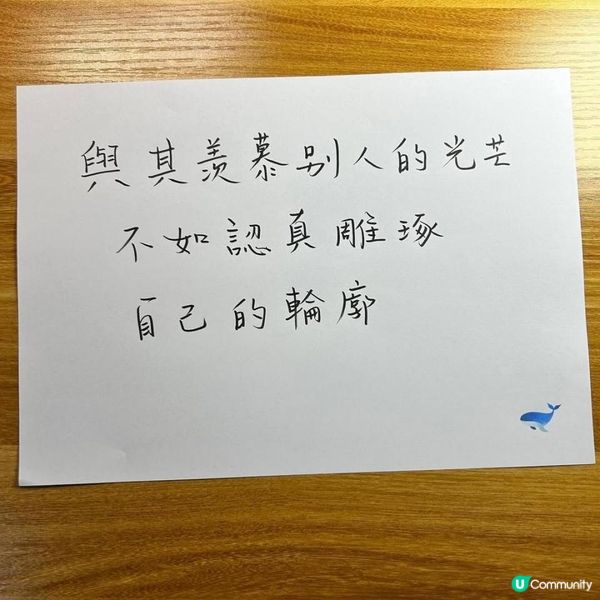 與其羨慕別人的光芒
不如認真雕琢
自己的輪廓
U Community